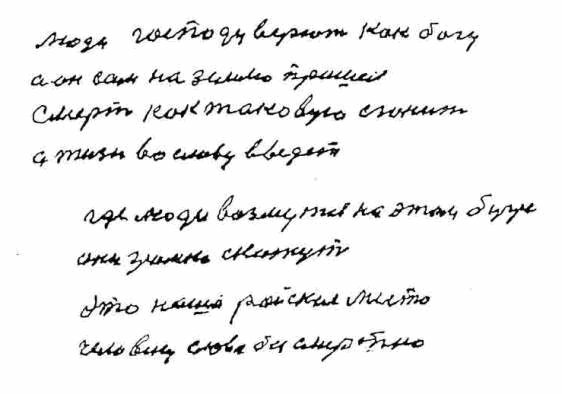 люди господу верют как богу
а он сам на землю пришел
смерть как таковую сгонит
а жизн во славу введет
где люди возмутся на этом бугре
они громко скажут
это наша райская место
человеку слава бессмертно